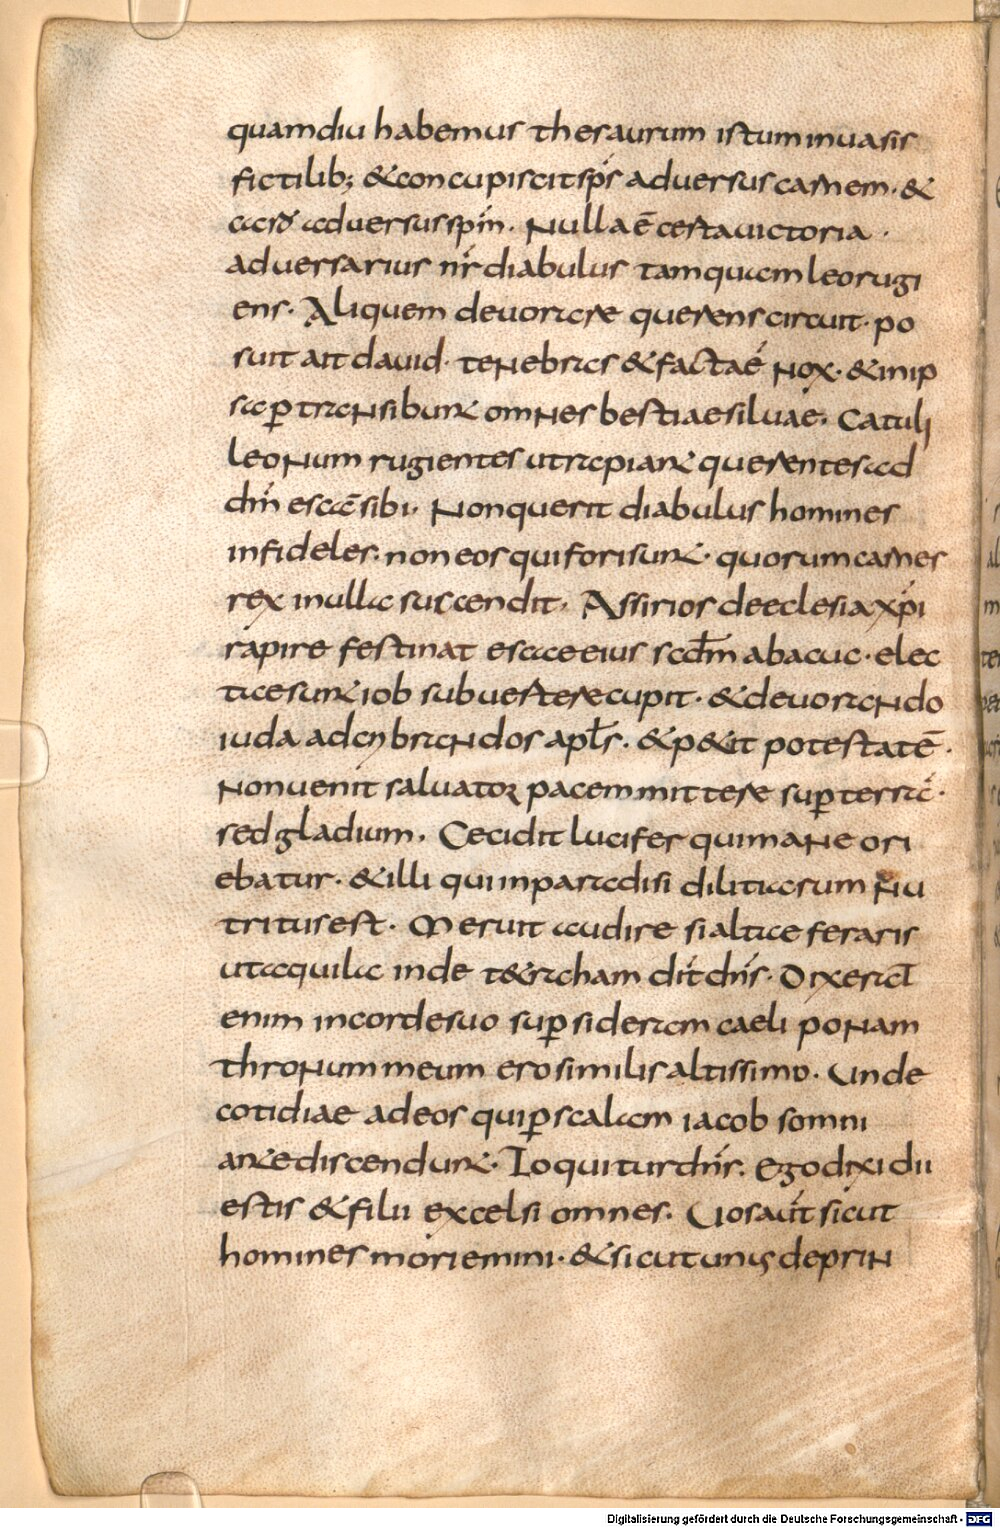 quamdiu habemus thesaurum istum inuasis
fictilib; & concupiscit sp̄s aduersus carnem · &
caro aduersus spm̄ · Nulla ē certa uictoria ·
aduersarius nr̄ diabulus tamquam leo rugi
ens · Aliquem deuorare querens circuit · po
suit ait dauid · tenebras & facta ē nox · & in ip
sa ꝑtransibunt omnes bestiae siluae · Catuli
leonum rugientes ut rapiant querentes ad
dm̄ escā sibi · Non querit diabulus homines
infideles · non eos qui foris sunt · quorum carnes
rex in ulla succendit · Assirios de eclesia xp̄i
rapire festinat escae eius scd̄m abacuc · elec
tae sunt iob subuertere cupit · & deuorando
iuda ad cybrandos apl̄s · & p&it potestatē ·
Non uenit saluator pacem mittere suꝑ terrā ·
sed gladium · Cecidit lucifer qui mane ori
ebatur · & illi qui in paradisi dilitiarum nu
tritus est · Meruit audire si altae feraris
ut aquila inde t&raham dit dn̄s · Dixerat
enim in corde suo suꝑ sideram caeli ponam
thronum meum ero similis altissimo · Unde
cotidiae ad eos qui ꝑ scalam iacob somni
ante discendunt · Loquitur dn̄s · Ego dixi dii
estis & filii excelsi omnes · Uos aūt sicut
homines moriemini · & sicut unus de prin
Digitalisierung gefördert durch die Deutsche Forschungsgemeinschaft - DFG